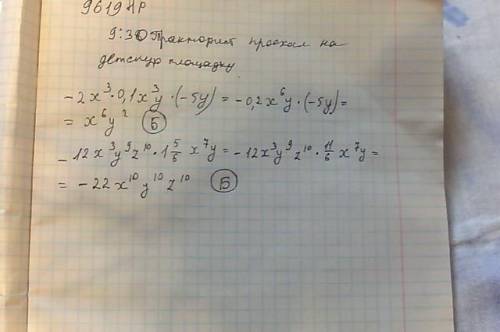 9619НР
9:30 Тракторист проехал на
детскую площадку
-2x³·0,1x³y·(-5y) = -0,2x⁶y·(-5y) =
= x⁶y² Б
-12x³y⁹z¹⁰·1 5/6 x⁷y = -12x³y⁹z¹⁰·11/6 x⁷y =
= -22x¹⁰y¹⁰z¹⁰ Б